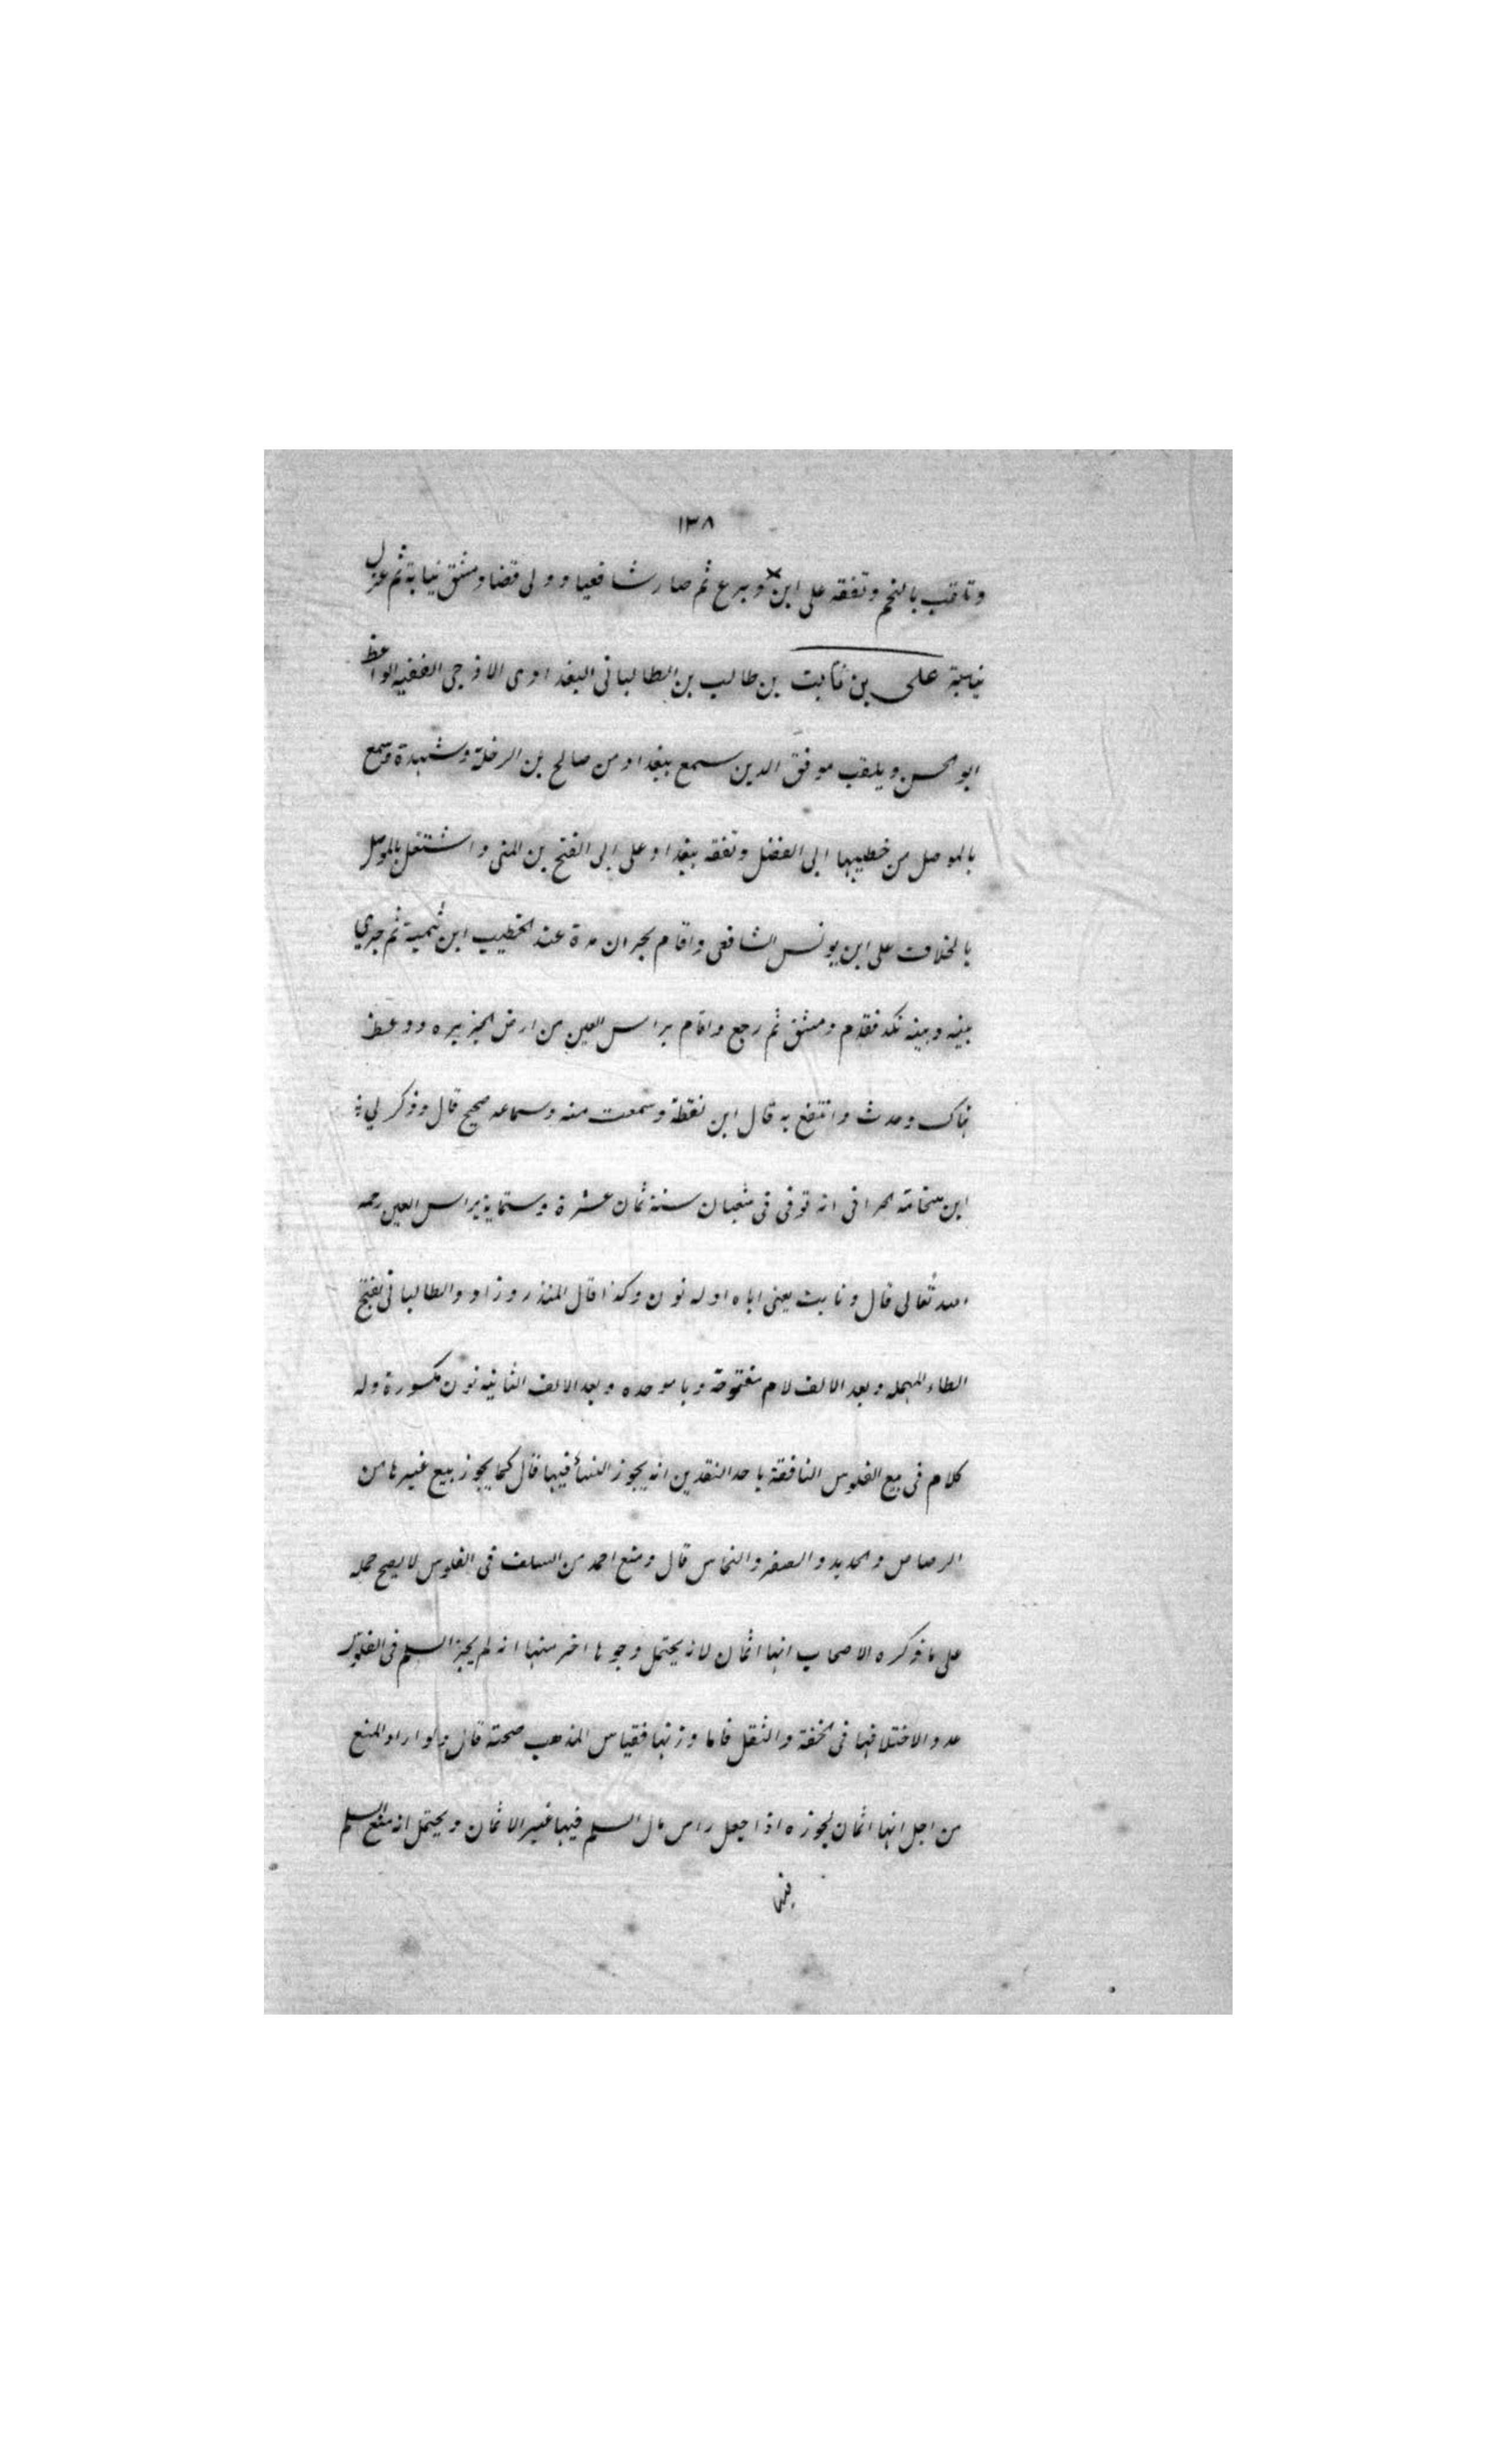 ١٣٨
وتلقب بالنجم وتفقه على ابن وبرع ثم صار شافعيا وولى قضا دمشق نيابة ثم عزل
نيابة على بن ثابت بن طالب بن الطالبانى البغدادى الازجى الفقيه الواعظ
ابو الحسن ويلقب موفق الدين سمع ببغداد من صالح بن الرخلة وشهدة وسمع
بالموصل من خطيبها ابى الفضل وتفقه ببغداد على ابى الفتح بن المنى واشتغل بالموصل
بالخلاف على ابن يونس الشافعى واقام بحران مدة عند الخطيب ابن تيمية ثم جرى
بينه وبينه نكد فقدم دمشق ثم رجع واقام براس العين من ارض الجزيره ووعظ
هناك وحدث وانتفع به قال ابن نقطة وسمعت منه وسماعه صحيح قال وذكر لي
ابن الحرانى انه توفى فى شعبان سنة ثمان عشرة وستماية براس العين رحمه
الله تعالى قال ونابت يعنى اباه اوله نون وكذا قال المنذر وزاد والطالبانى بفتح
الطاء المهمله وبعد الالف لام مفتوحة وبا موحده وبعد الالف الثانيه نون مكسورة وله
كلام فى بيع الفلوس النافقة باحد النقدين انه يجوز النسأ فيها قال كما يجوز بيع غيرها من
الرصاص والحديد والصفر والنحاس قال ومنع احمد من السلف فى الفلوس لا يصح حمله
على ما ذكره الاصحاب انها اثمان لانه يحتمل وجوها اخر منها انه لم يجز السلم فى الفلوس
عددا لاختلافها فى الخفة والثقل فاما وزنها فقياس المذهب صحته قال ولو اراد المنع
من اجل انها اثمان لجوزه اذا جعل راس مال السلم فيها غير الاثمان ويحتمل انه منع السلم
فيها